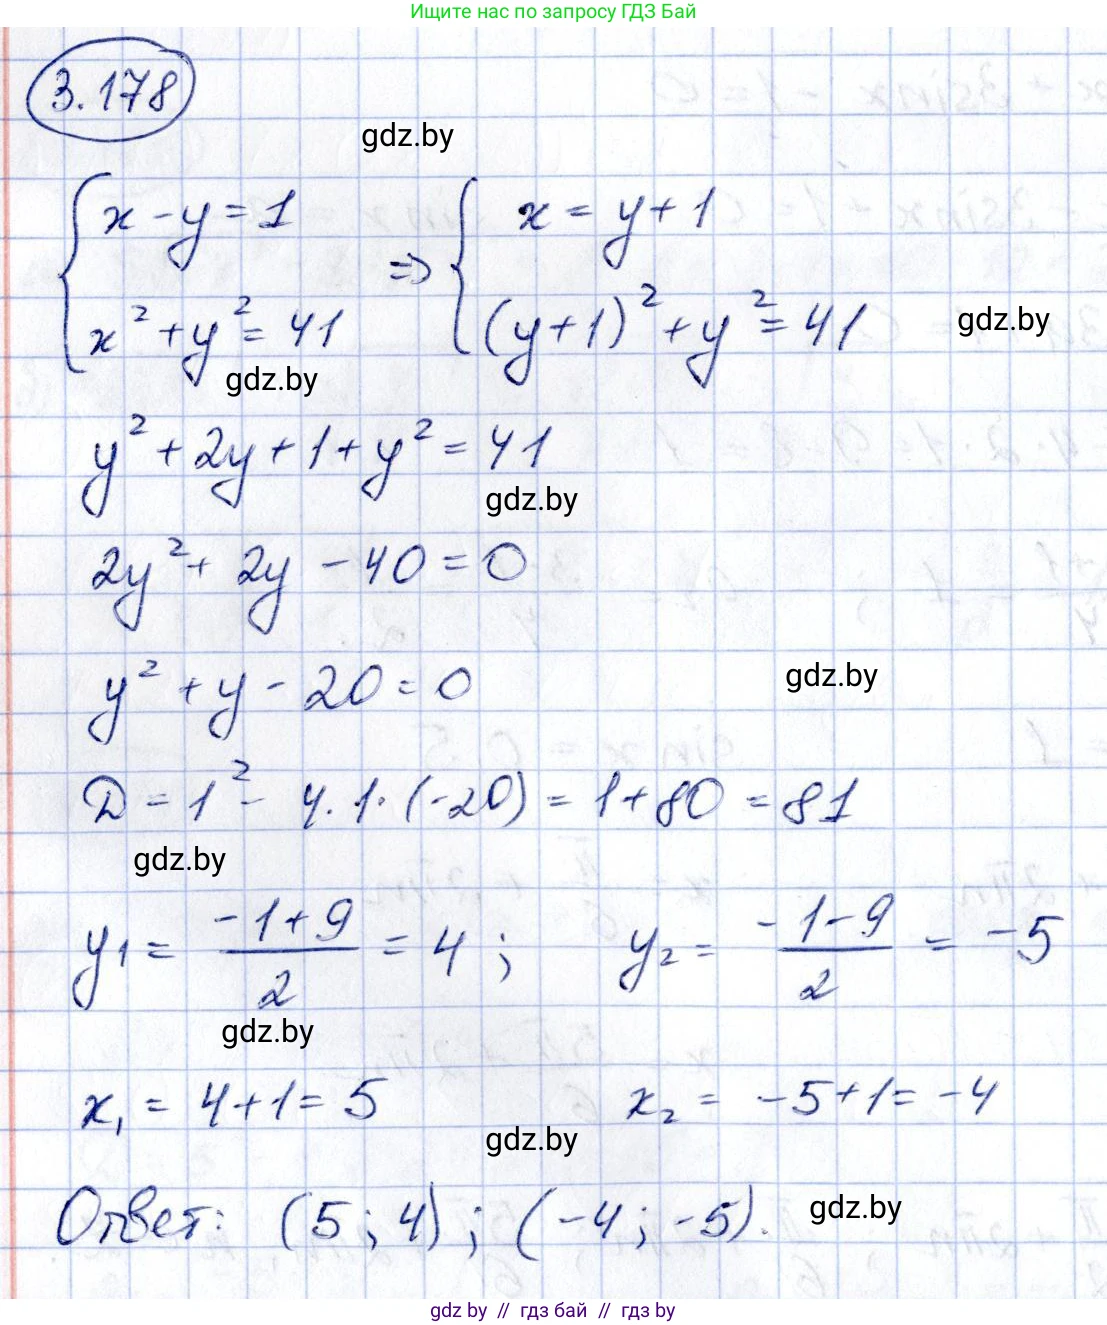 Ищите нас по запросу ГДЗ Бай
3.178
gdz.by
{ x - y = 1 => { x = y + 1
x² + y² = 41 (y + 1)² + y² = 41
gdz.by
gdz.by
y² + 2y + 1 + y² = 41
gdz.by
2y² + 2y - 40 = 0
y² + y - 20 = 0
gdz.by
D = 1² - 4 · 1 · (-20) = 1 + 80 = 81
gdz.by
y₁ = (-1+9)/2 = 4 ; y₂ = (-1-9)/2 = -5
gdz.by
x₁ = 4 + 1 = 5 x₂ = -5 + 1 = -4
gdz.by
Ответ: (5 ; 4) ; (-4 ; -5).
gdz.by
gdz by // гдз бай // гдз by